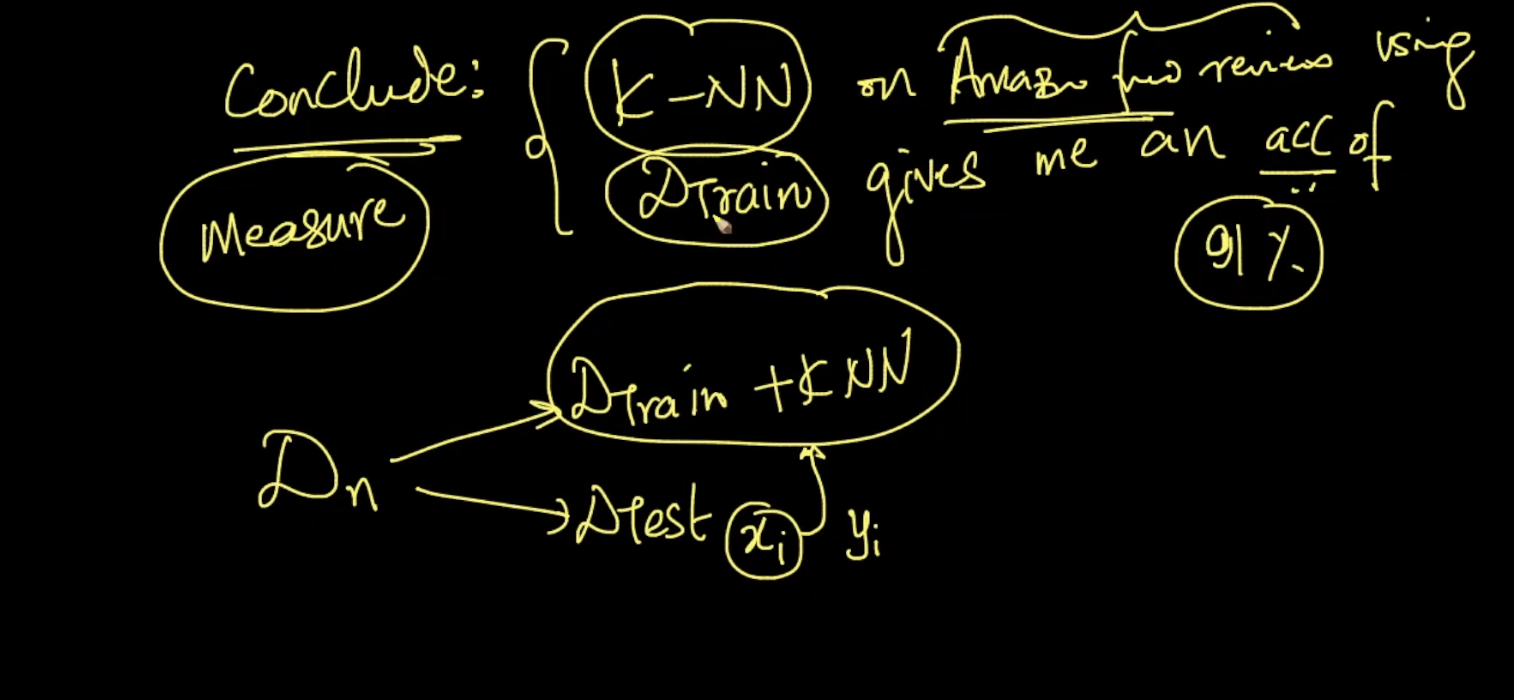 Conclude: K-NN on Amazon food reviews using
Measure DTrain gives me an acc of
91%.
DTrain + KNN
Dn
DTest xi yi